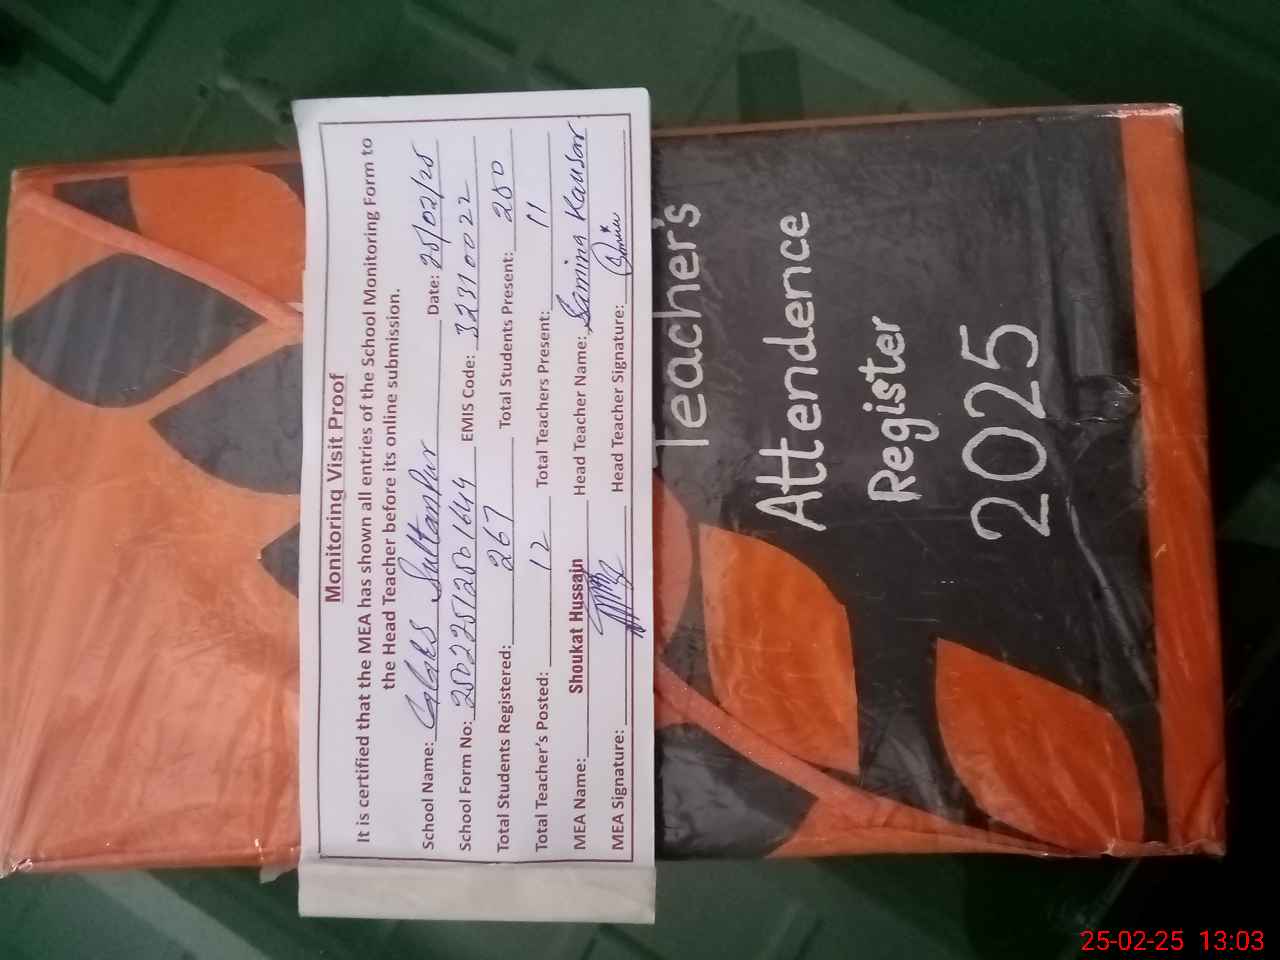 Monitoring Visit Proof
It is certified that the MEA has shown all entries of the School Monitoring Form to
the Head Teacher before its online submission.
School Name: GGES Sultanpur Date: 25/02/25
School Form No: EMIS Code: 32310022
Total Students Registered: 267 Total Students Present: 250
Total Teacher's Posted: 12 Total Teachers Present: 11
MEA Name: Shoukat Hussain Head Teacher Name: Samina Kausar
MEA Signature: Head Teacher Signature:
Teacher's
Attendence
Register
2025
25-02-25 13:03